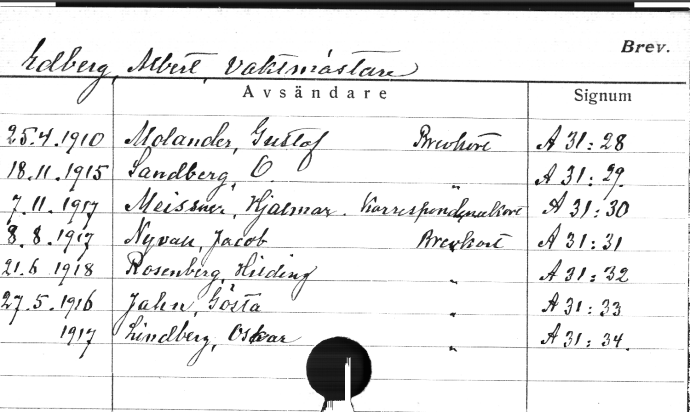 Brev.
Edberg, Albert, vaktmästare
Avsändare Signum
25.4.1910 Molander, Gustof Brevkort A 31:28
18.11.1915 Sandberg, O " A 31:29.
7.11.1917 Meissner, Hjalmar. Korrespondenskort A 31:30
8.8.1917 Nyvall, Jacob Brevkort A 31:31
21.6 1918 Rosenberg, Hilding " A 31:32
27.5.1916 Jahn, Gösta " A 31:33
1917 Lindberg, Oskar " A 31:34.